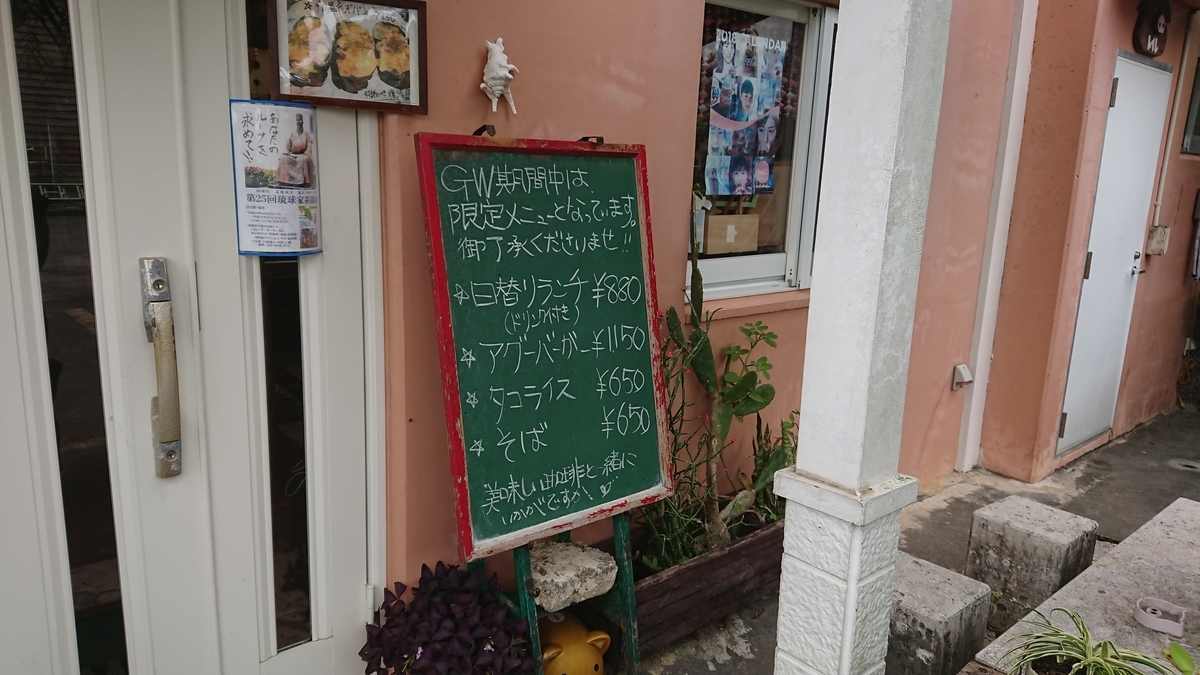 あなたの
ルーツを
求めて!!
第25回琉球家
2018 CALENDAR
GW期間中は、
限定メニューとなっています。
御了承くださいませ!!
☆日替りランチ ¥880
(ドリンク付き)
☆アグーバーガー ¥1150
☆タコライス ¥650
☆そば ¥650
美味しい珈琲と一緒に
いかがですか♡